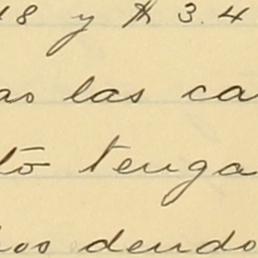 18 y $ 3.4
as las ca
to tenga
hos dendo